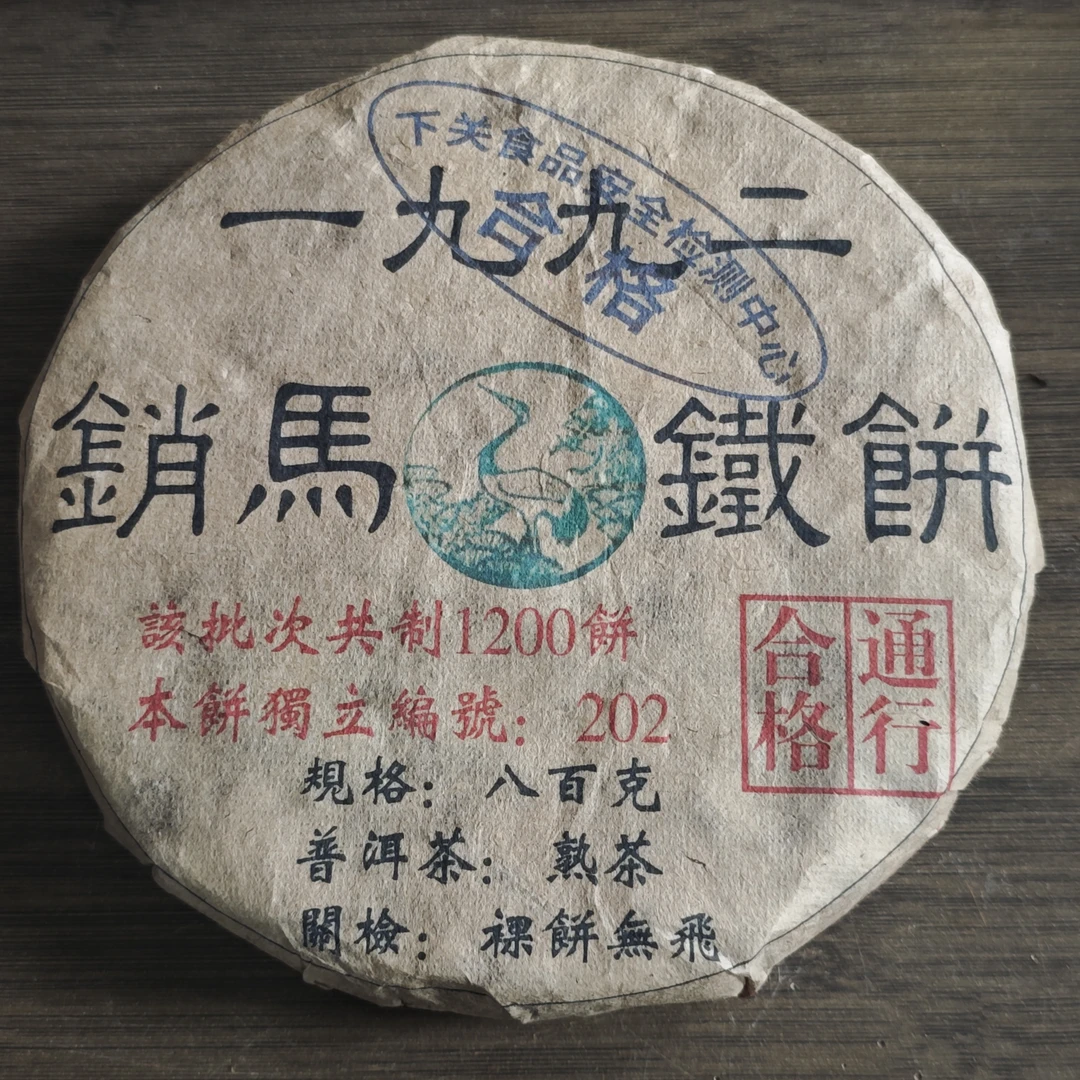 下关食品安全检测中心
合格
一九九二
銷馬鐵餅
該批次共制1200餅
本餅獨立編號：202
通行
合格
規格：八百克
普洱茶：熟茶
關檢：裸餅無飛